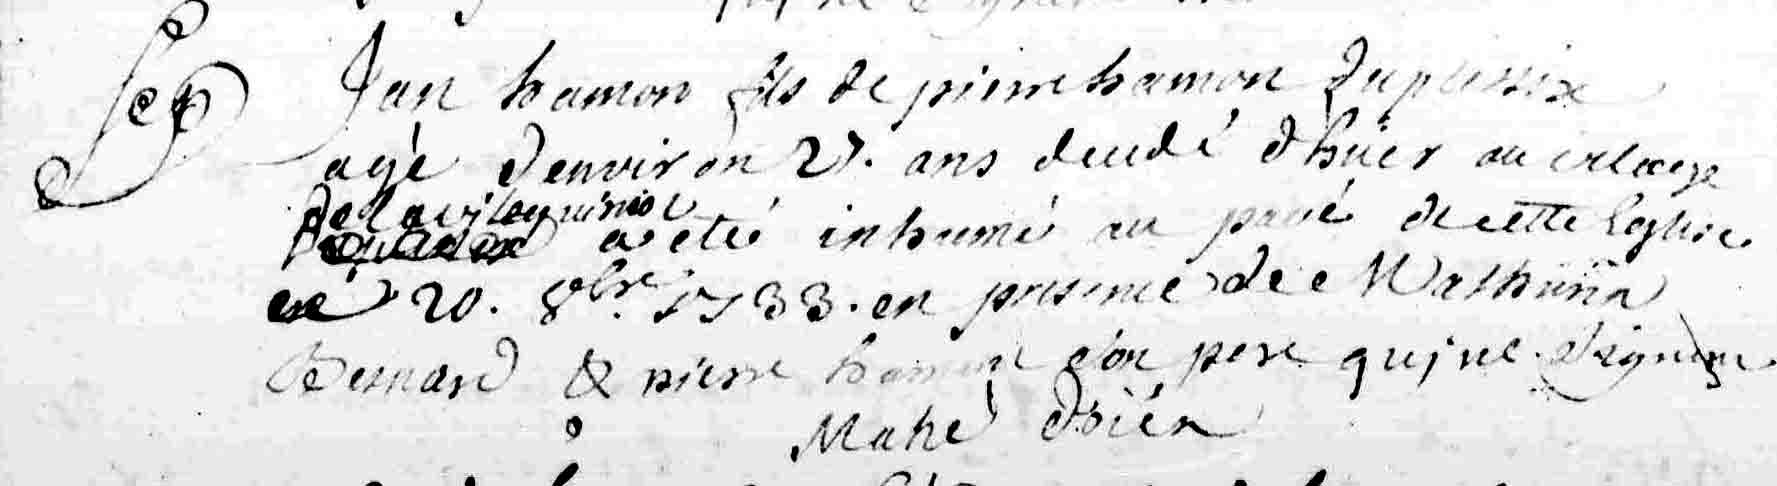 Sep Jan hamon fils de pierre hamon duplessix
agé denviron 27. ans decedé dhuier au vilage
de la vilequinio a eté inhumé au pavé de cette Eglise
ce 20. 8bre 1733. en presence de Mathurin
Besnard & pierre hamon son pere qui ne signent
Mahé